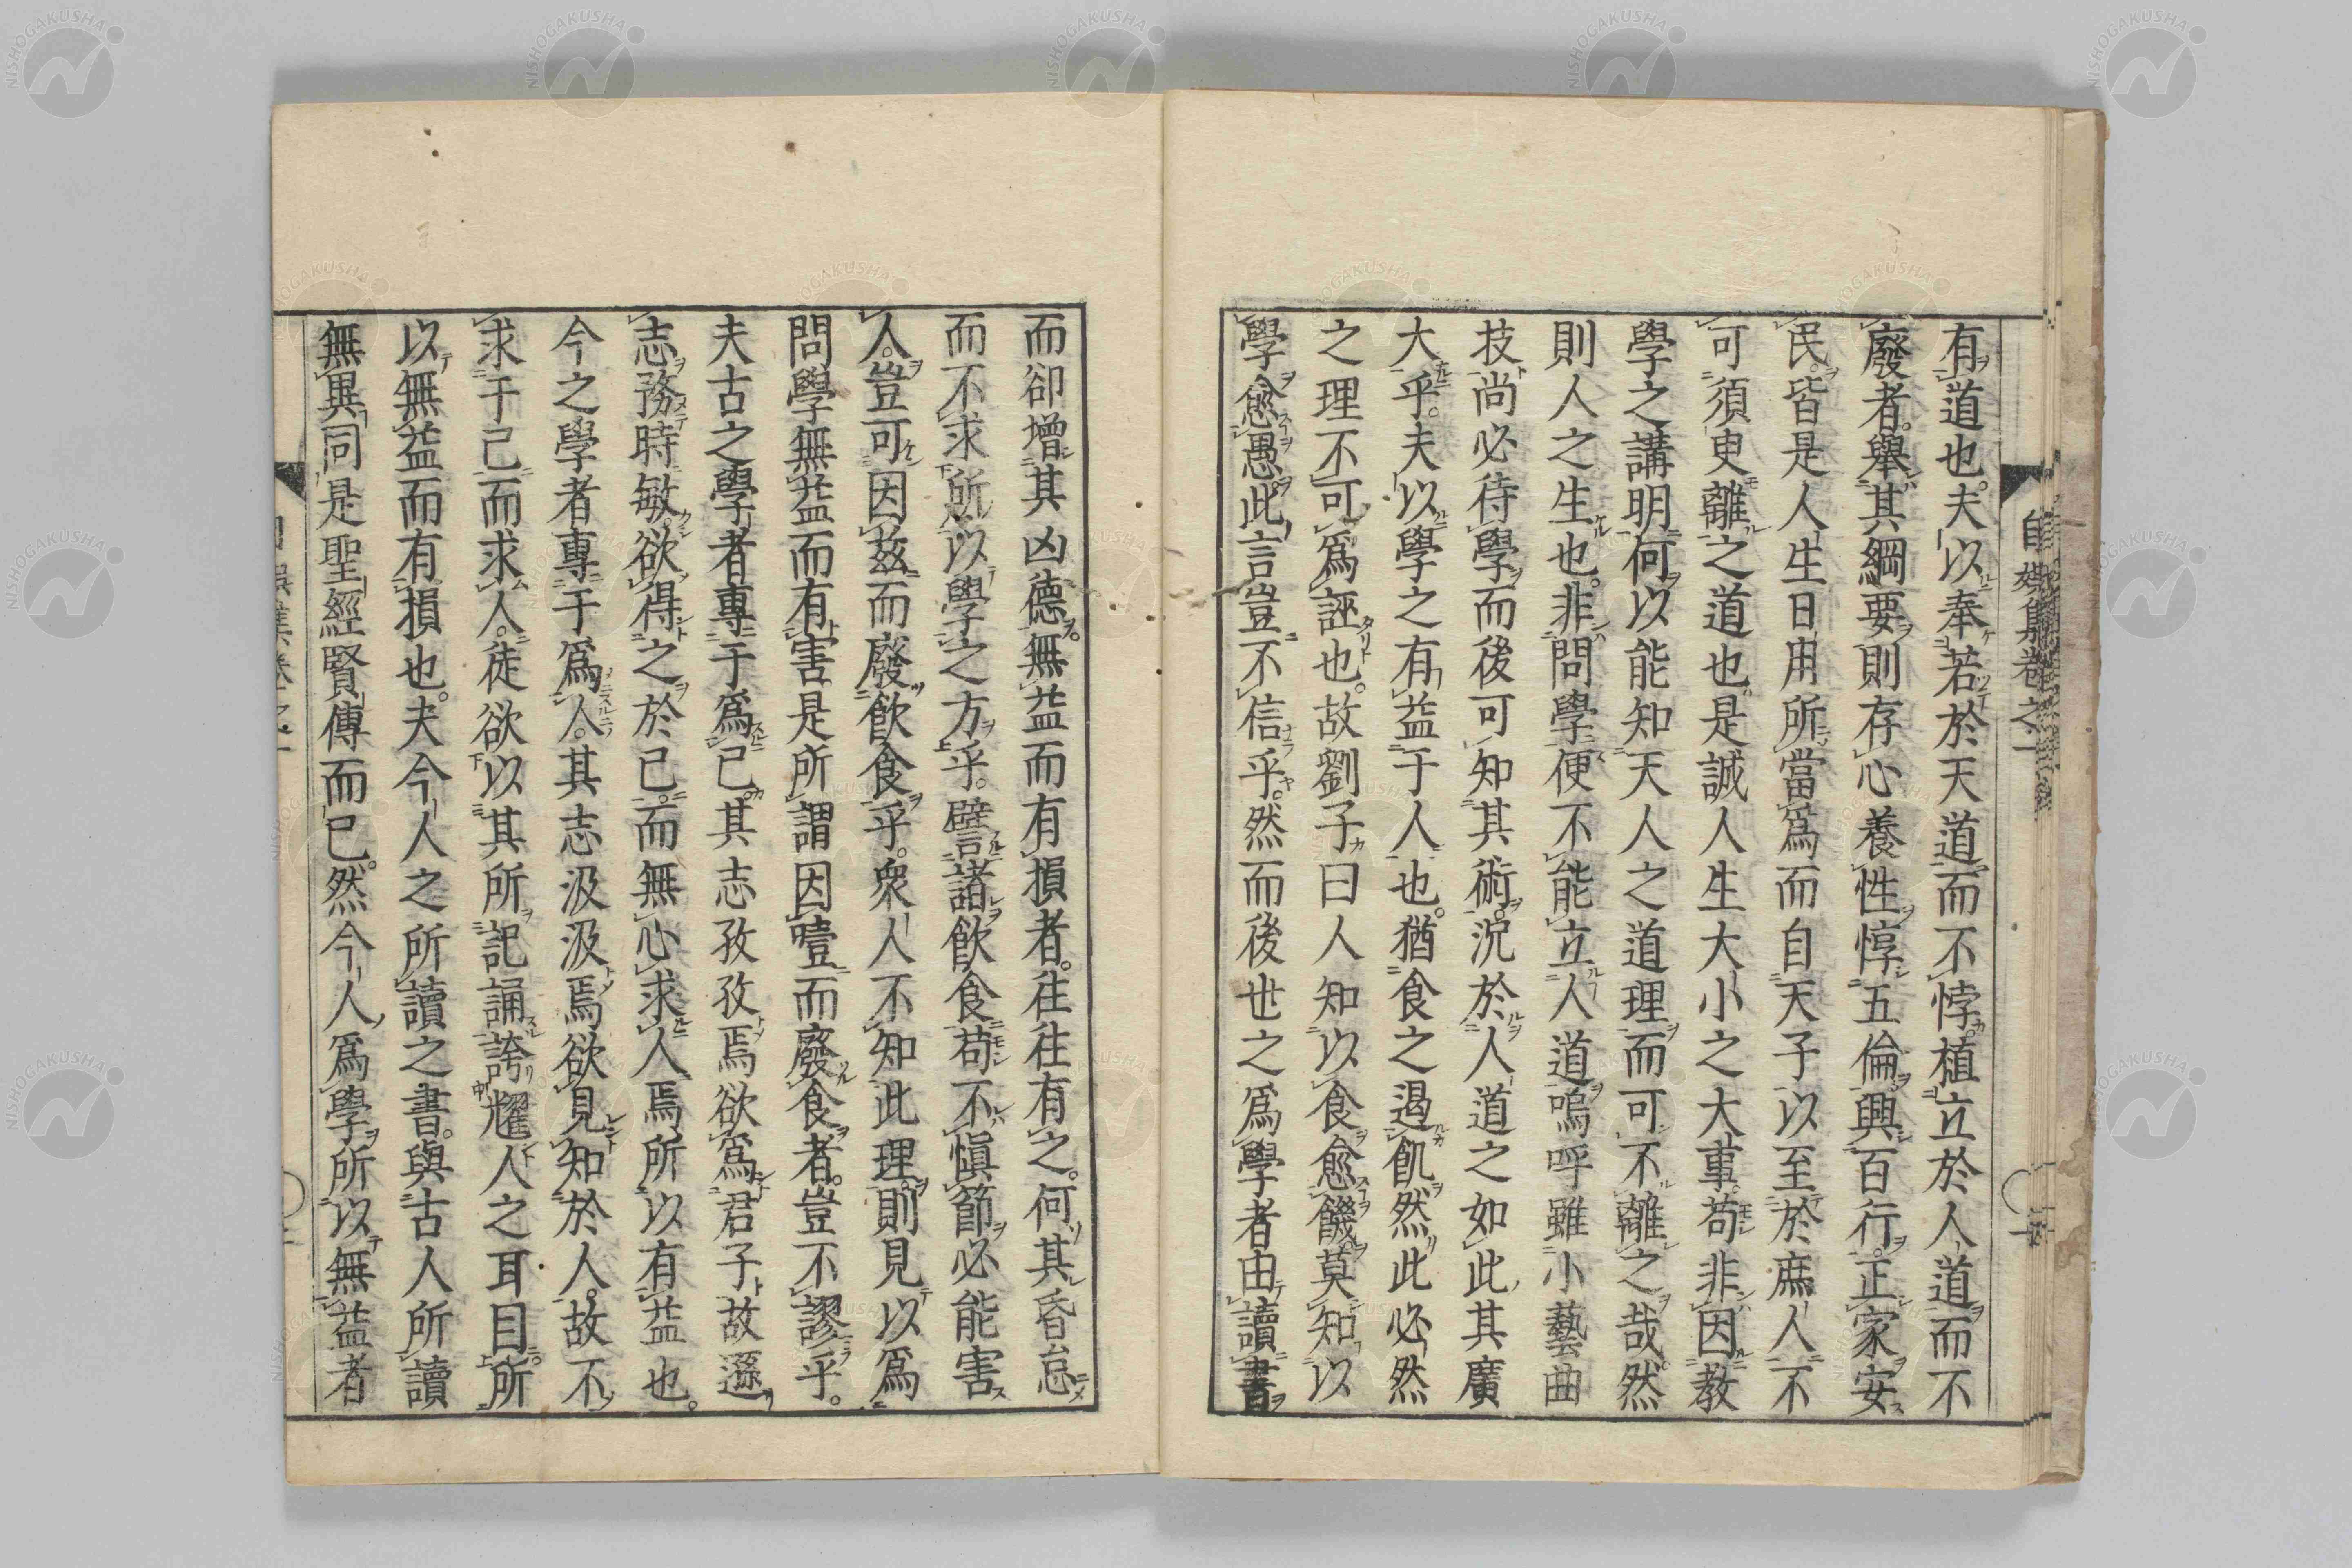 自娯集卷之一
有道也。夫以奉若於天道而不悖。植立於人道而不
廢者。舉其綱要則存心養性惇五倫興百行。正家安
民。皆是人生日用所當爲而自天子以至於庶人不
可須臾離之道也是誠人生大小之大事。苟非因教
學之講明何以能知天人之道理而可不離之哉。然
則人之生也。非問學便不能立人道嗚呼雖小藝曲
技尚必待學而後可知其術。況於人道之如此其廣
大乎。夫以學之有益于人也。猶食之遏飢然此必然
之理不可爲誣也。故劉子曰人知以食愈饑。莫知以
學愈愚。此言豈不信乎。然而後世之爲學者由讀書
而卻增其凶德。無益而有損者。往往有之。何其昏怠
而不求所以學之方乎。譬諸飲食苟不愼節必能害
人。豈可因茲而廢飲食乎。衆人不知此理。則見以爲
問學無益而有害是所謂因噎而廢食者。豈不謬乎。
夫古之學者專于爲己。其志孜孜焉欲爲君子故遜
志務時敏。欲得之於己。而無心求人焉所以有益也。
今之學者專于爲人。其志汲汲焉欲見知於人。故不
求于己而求人。徒欲以其所記誦誇耀人之耳目。所
以無益而有損也。夫今人之所讀之書。與古人所讀
無異同是聖經賢傳而已。然今人爲學所以無益者